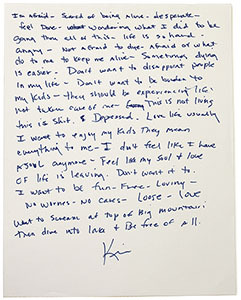 I'm afraid - Scared of being alone - desperate -
feel Done - wondering what I did to be
going thru all of this - life is so hard -
angry - Not afraid to dye - afraid of what
do to me to keep me alive - Sometimes dying
is easier - Don't want to disappoint people
in my life - Don't want to be burden to
my kids - they should be experiencing life,
not taken care of me - This is not living
this is shit. Depressed. Love life usually
I want to enjoy my kids They mean
everything to me - I don't feel like I have
a soul anymore - Feel like my Soul & love
of life is leaving. Don't want it to.
I want to be fun - Free - Loving -
No worries - No cares - Loose - love
Want to scream at top of Big mountain!
Then dive into lake & Be free of all.